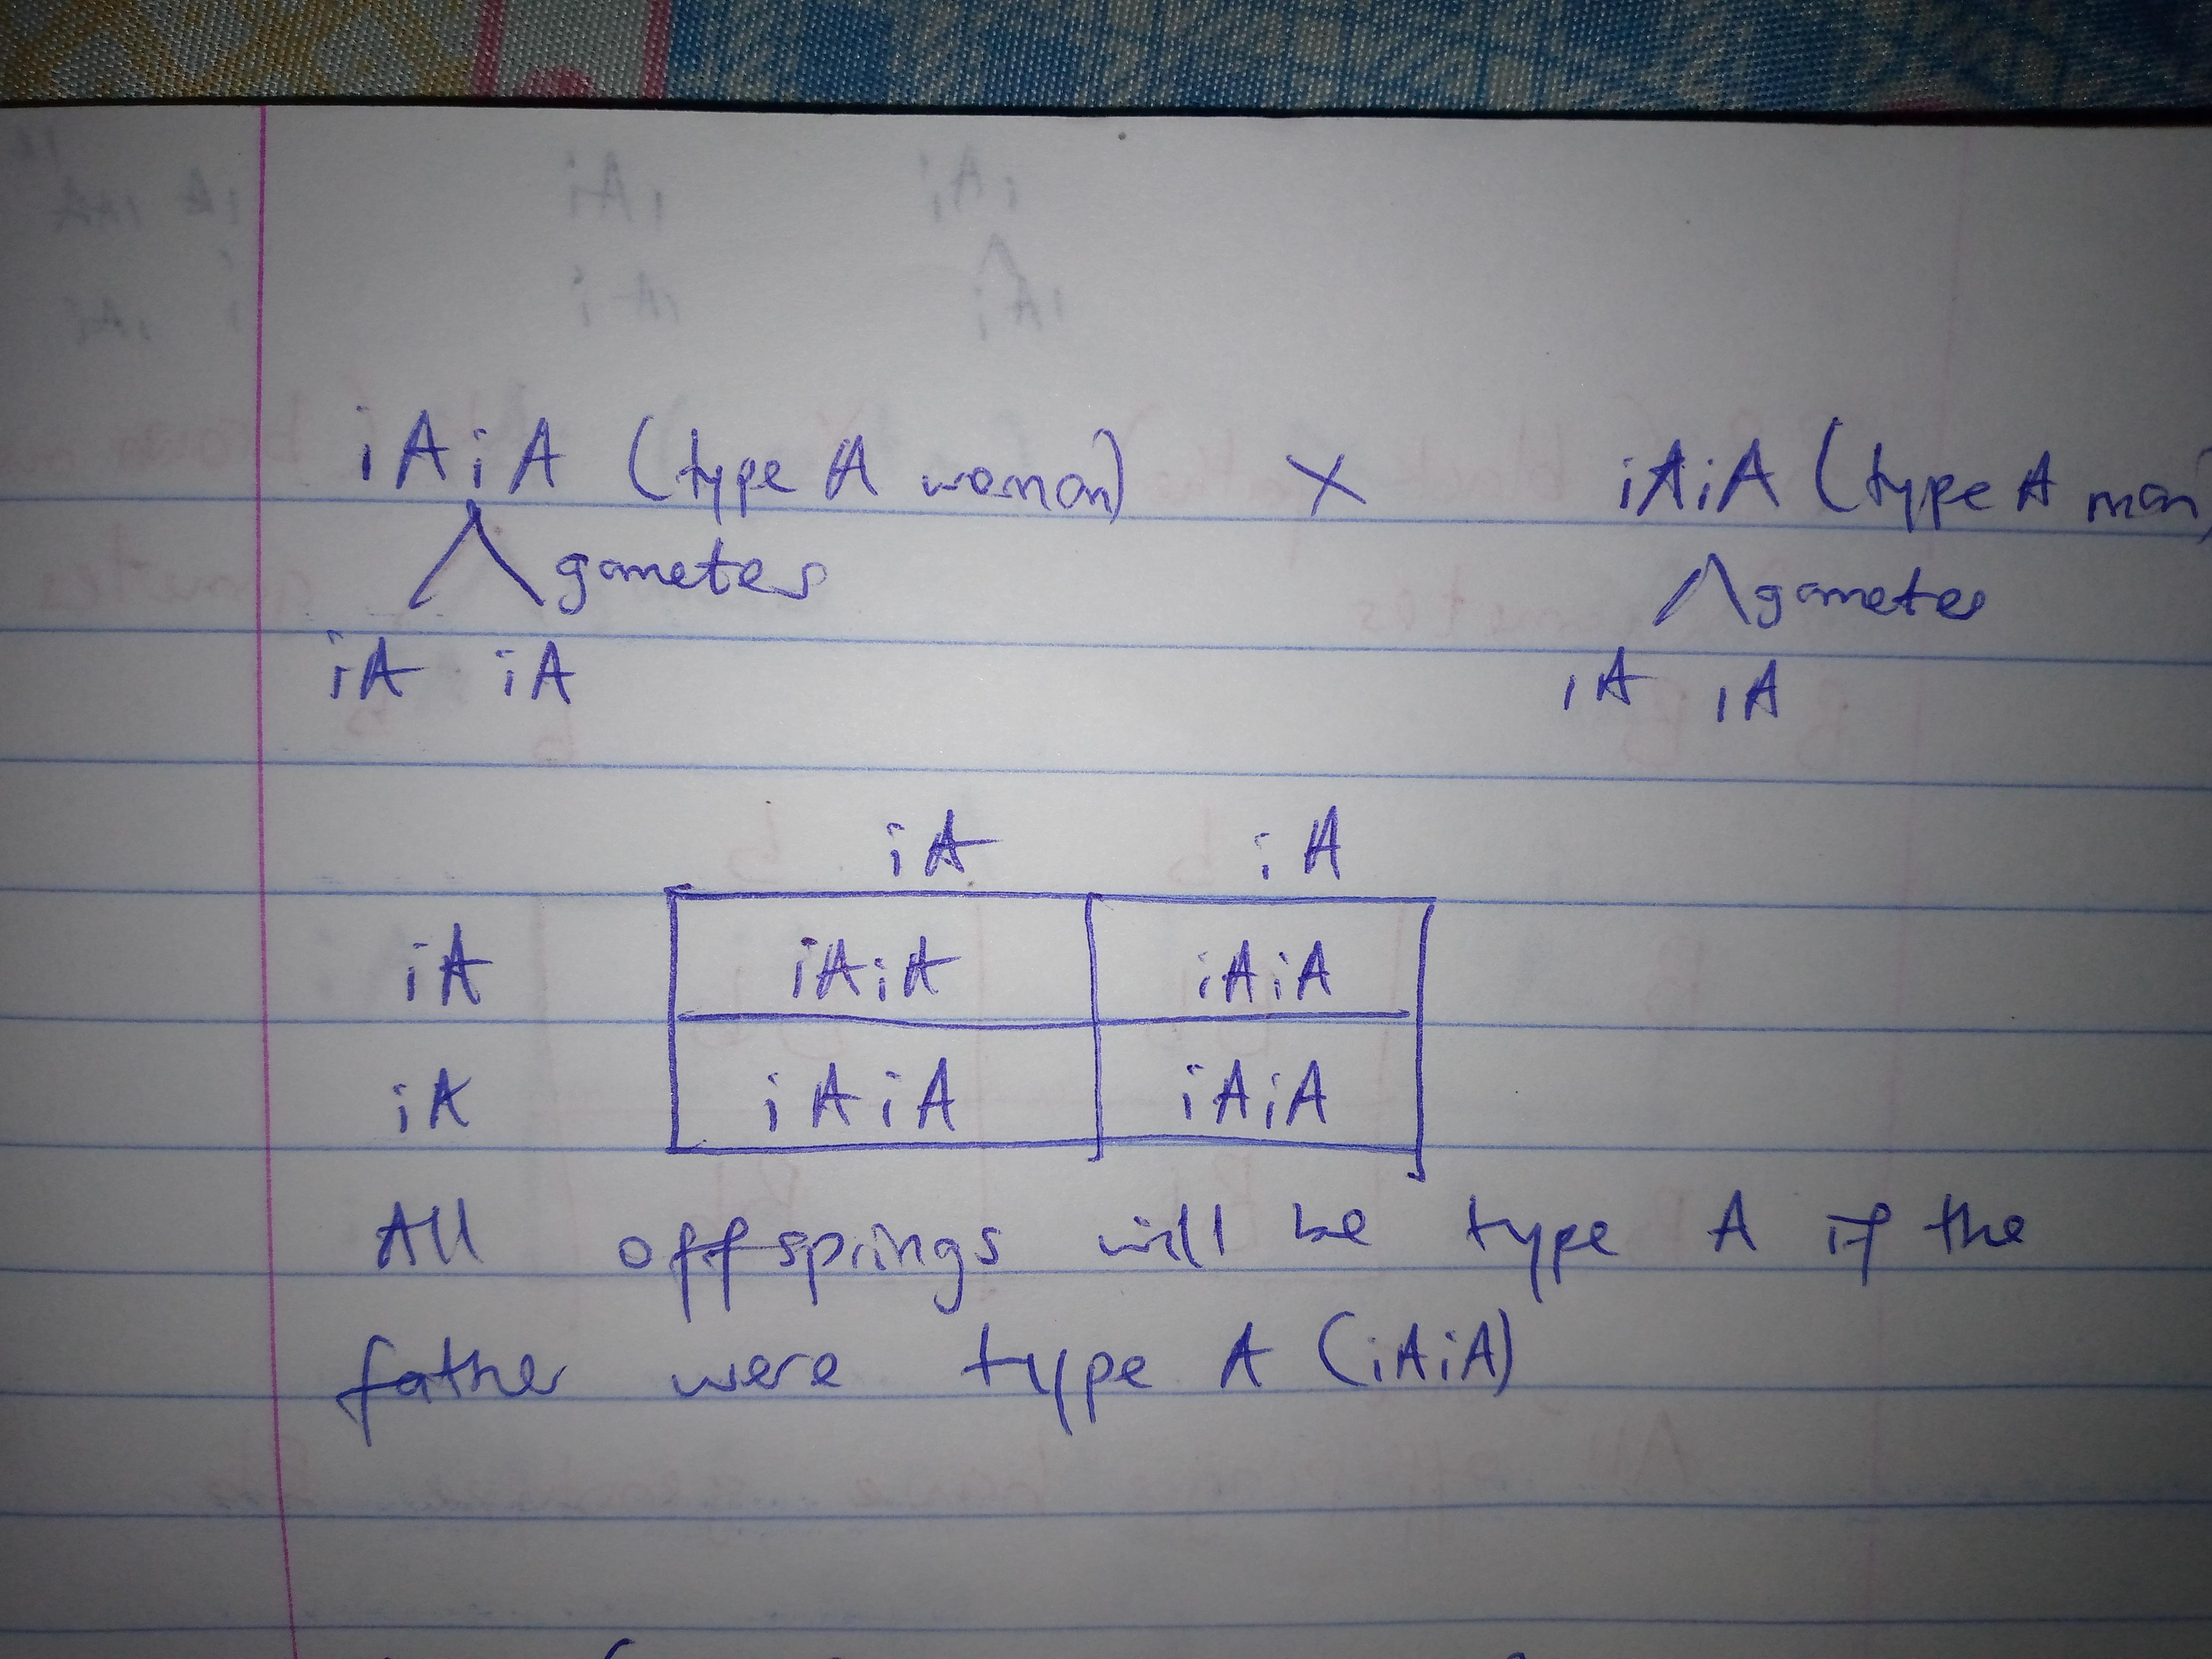 iAiA (type A woman) X iAiA (type A man)
gametes gametes
iA iA iA iA
iA iA
iA iAiA iAiA
iA iAiA iAiA
All offsprings will be type A if the
father were type A (iAiA)